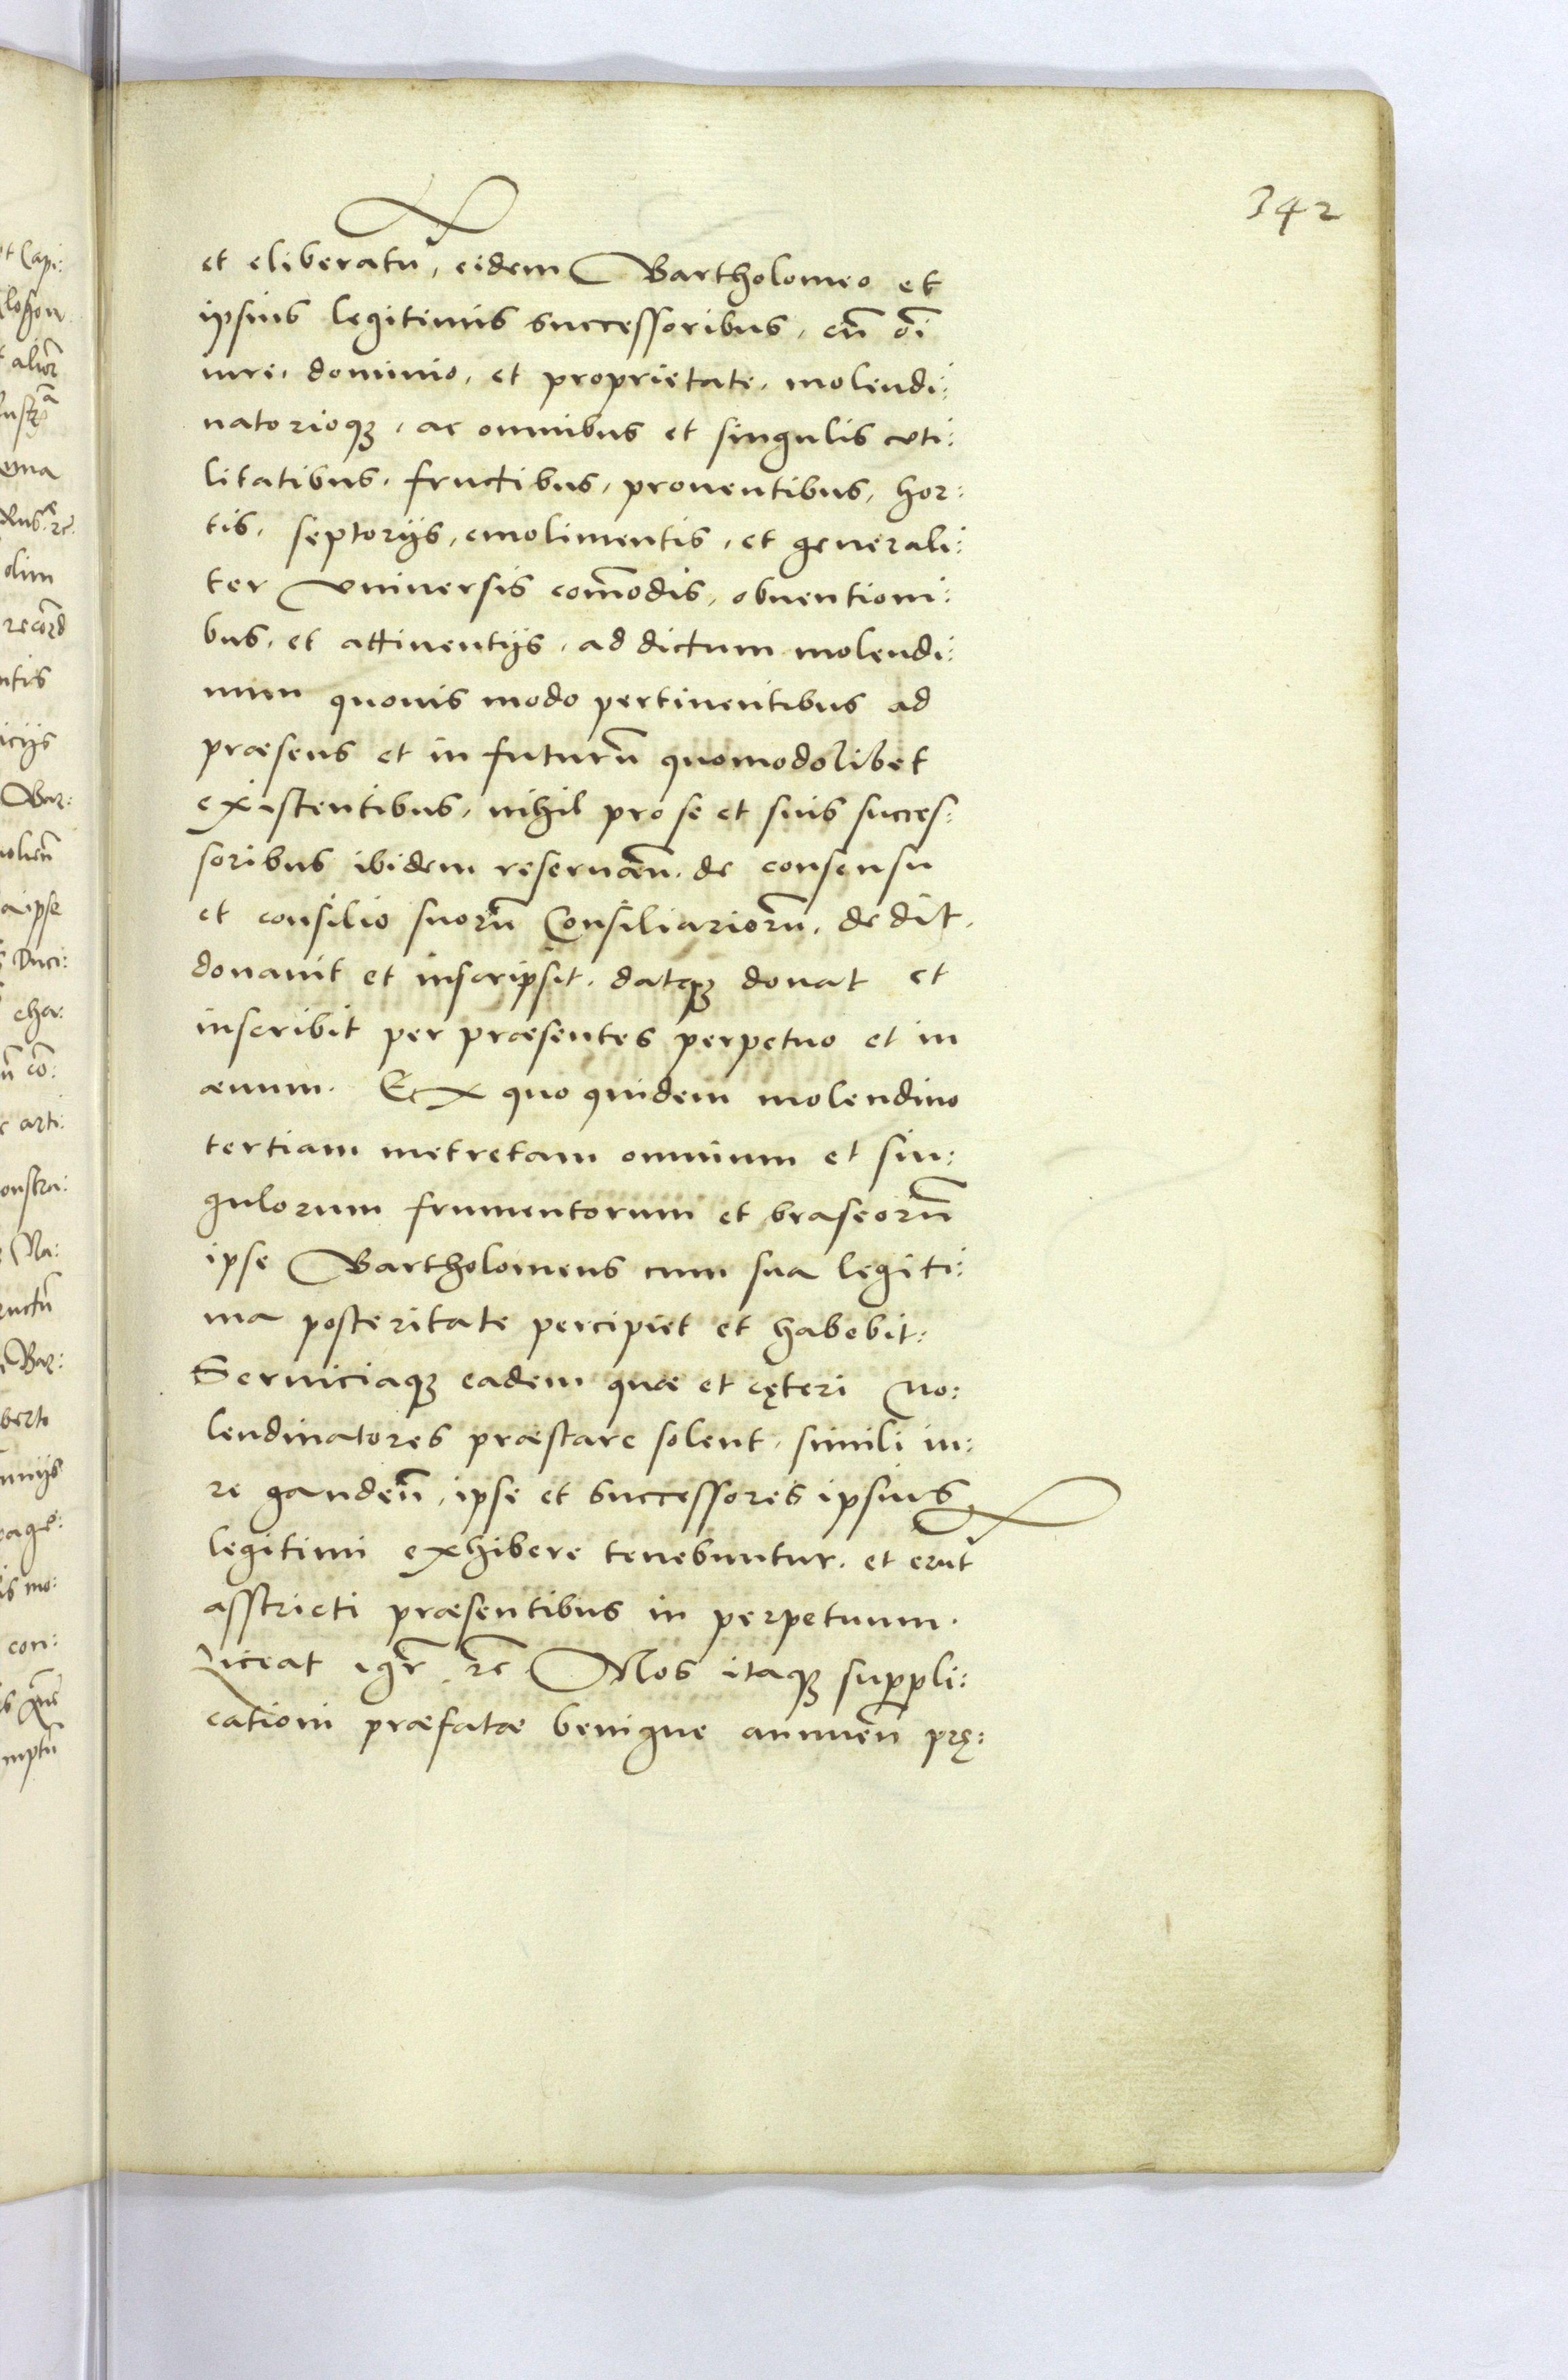 342
et eliberatū, eidem Bartholomeo et
ipsius legitimis successoribus, cū oī
iure, dominio, et proprietate, molendi:
natorioqȝ, ac omnibus et singulis vti:
litatibus, fructibus, prouentibus, hor:
tis, septorijs, emolimentis, et generali:
ter vniuersis com̄odis, obuentioni:
bus, et attinentijs, ad dictum molendi:
num quouis modo pertinentibus ad
præsens et in futurū quomodolibet
existentibus, nihil pro se et suis succes:
soribus ibidem reseruān̄, de consensu
et consilio suorū Consiliariorū, dedit,
donauit et inscripsit, datqȝ donat et
inscribit per præsentes perpetuo et in
æuum. Ex quo quidem molendino
tertiam metretam omnium et sin:
gulorum frumentorum et braseorū
ipse Bartholomeus cum sua legiti:
ma posteritate percipiet et habebit:
Seruiciaqȝ eadem quæ et cęteri mo:
lendinatores præstare solent, simili iu:
re gauden̄, ipse et successores ipsius
legitimi exhibere tenebuntur, et erūt
asstricti præsentibus in perpetuum.
Liceat igr̄ ꝛc̄ Nos itaqȝ suppli:
cationi præfatæ benigne annuen̄ prę: